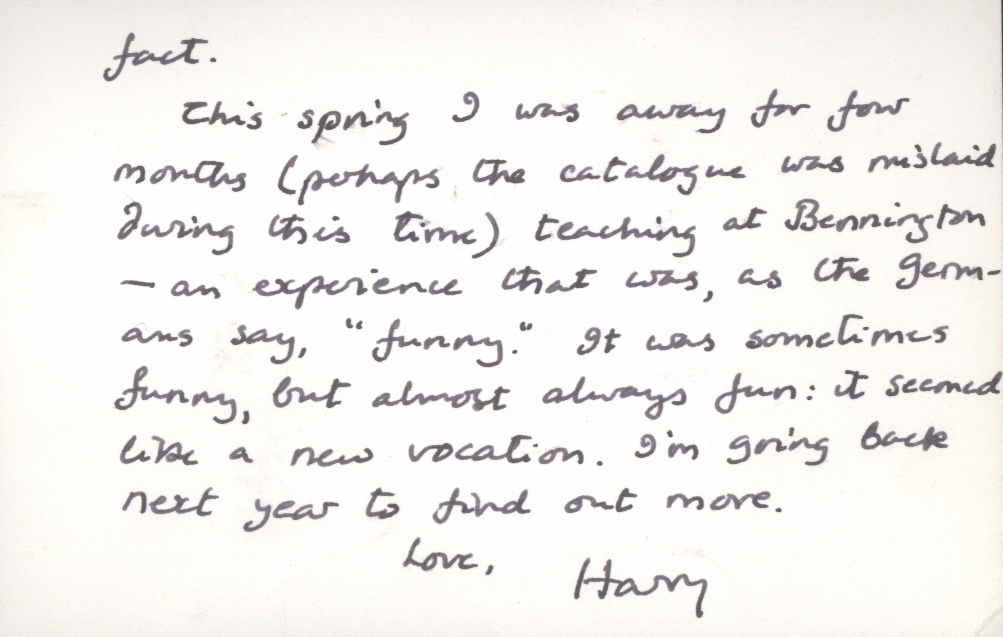 fact.
This spring I was away for four
months (perhaps the catalogue was mislaid
during this time) teaching at Bennington
— an experience that was, as the Germ-
ans say, "funny." It was sometimes
funny, but almost always fun: it seemed
like a new vocation. I'm going back
next year to find out more.
Love,
Harry